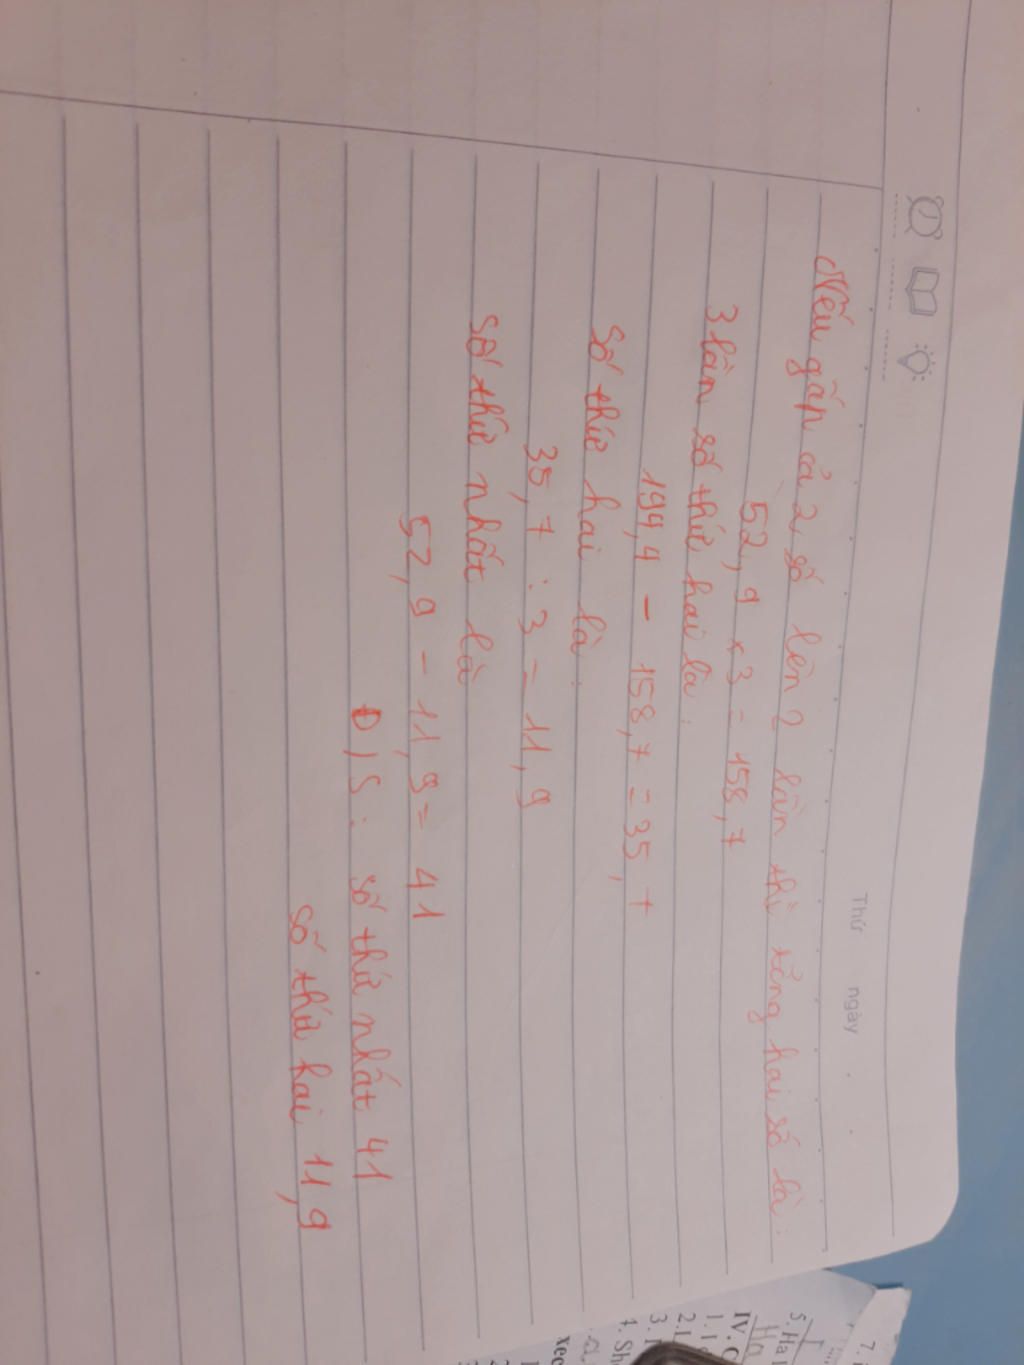 Thứ ngày
Nếu gấp cả 2 số lên 2 lần thì tổng hai số là:
52,9 x 3 = 158,7
3 lần số thứ hai là:
194,4 - 158,7 = 35,7
Số thứ hai là:
35,7 : 3 = 11,9
Số thứ nhất là
52,9 - 11,9 = 41
Đ/S: số thứ nhất 41
số thứ hai 11,9
5. Ha
IV. C
1. I
2. I
3.
4. Sh
xec
7.